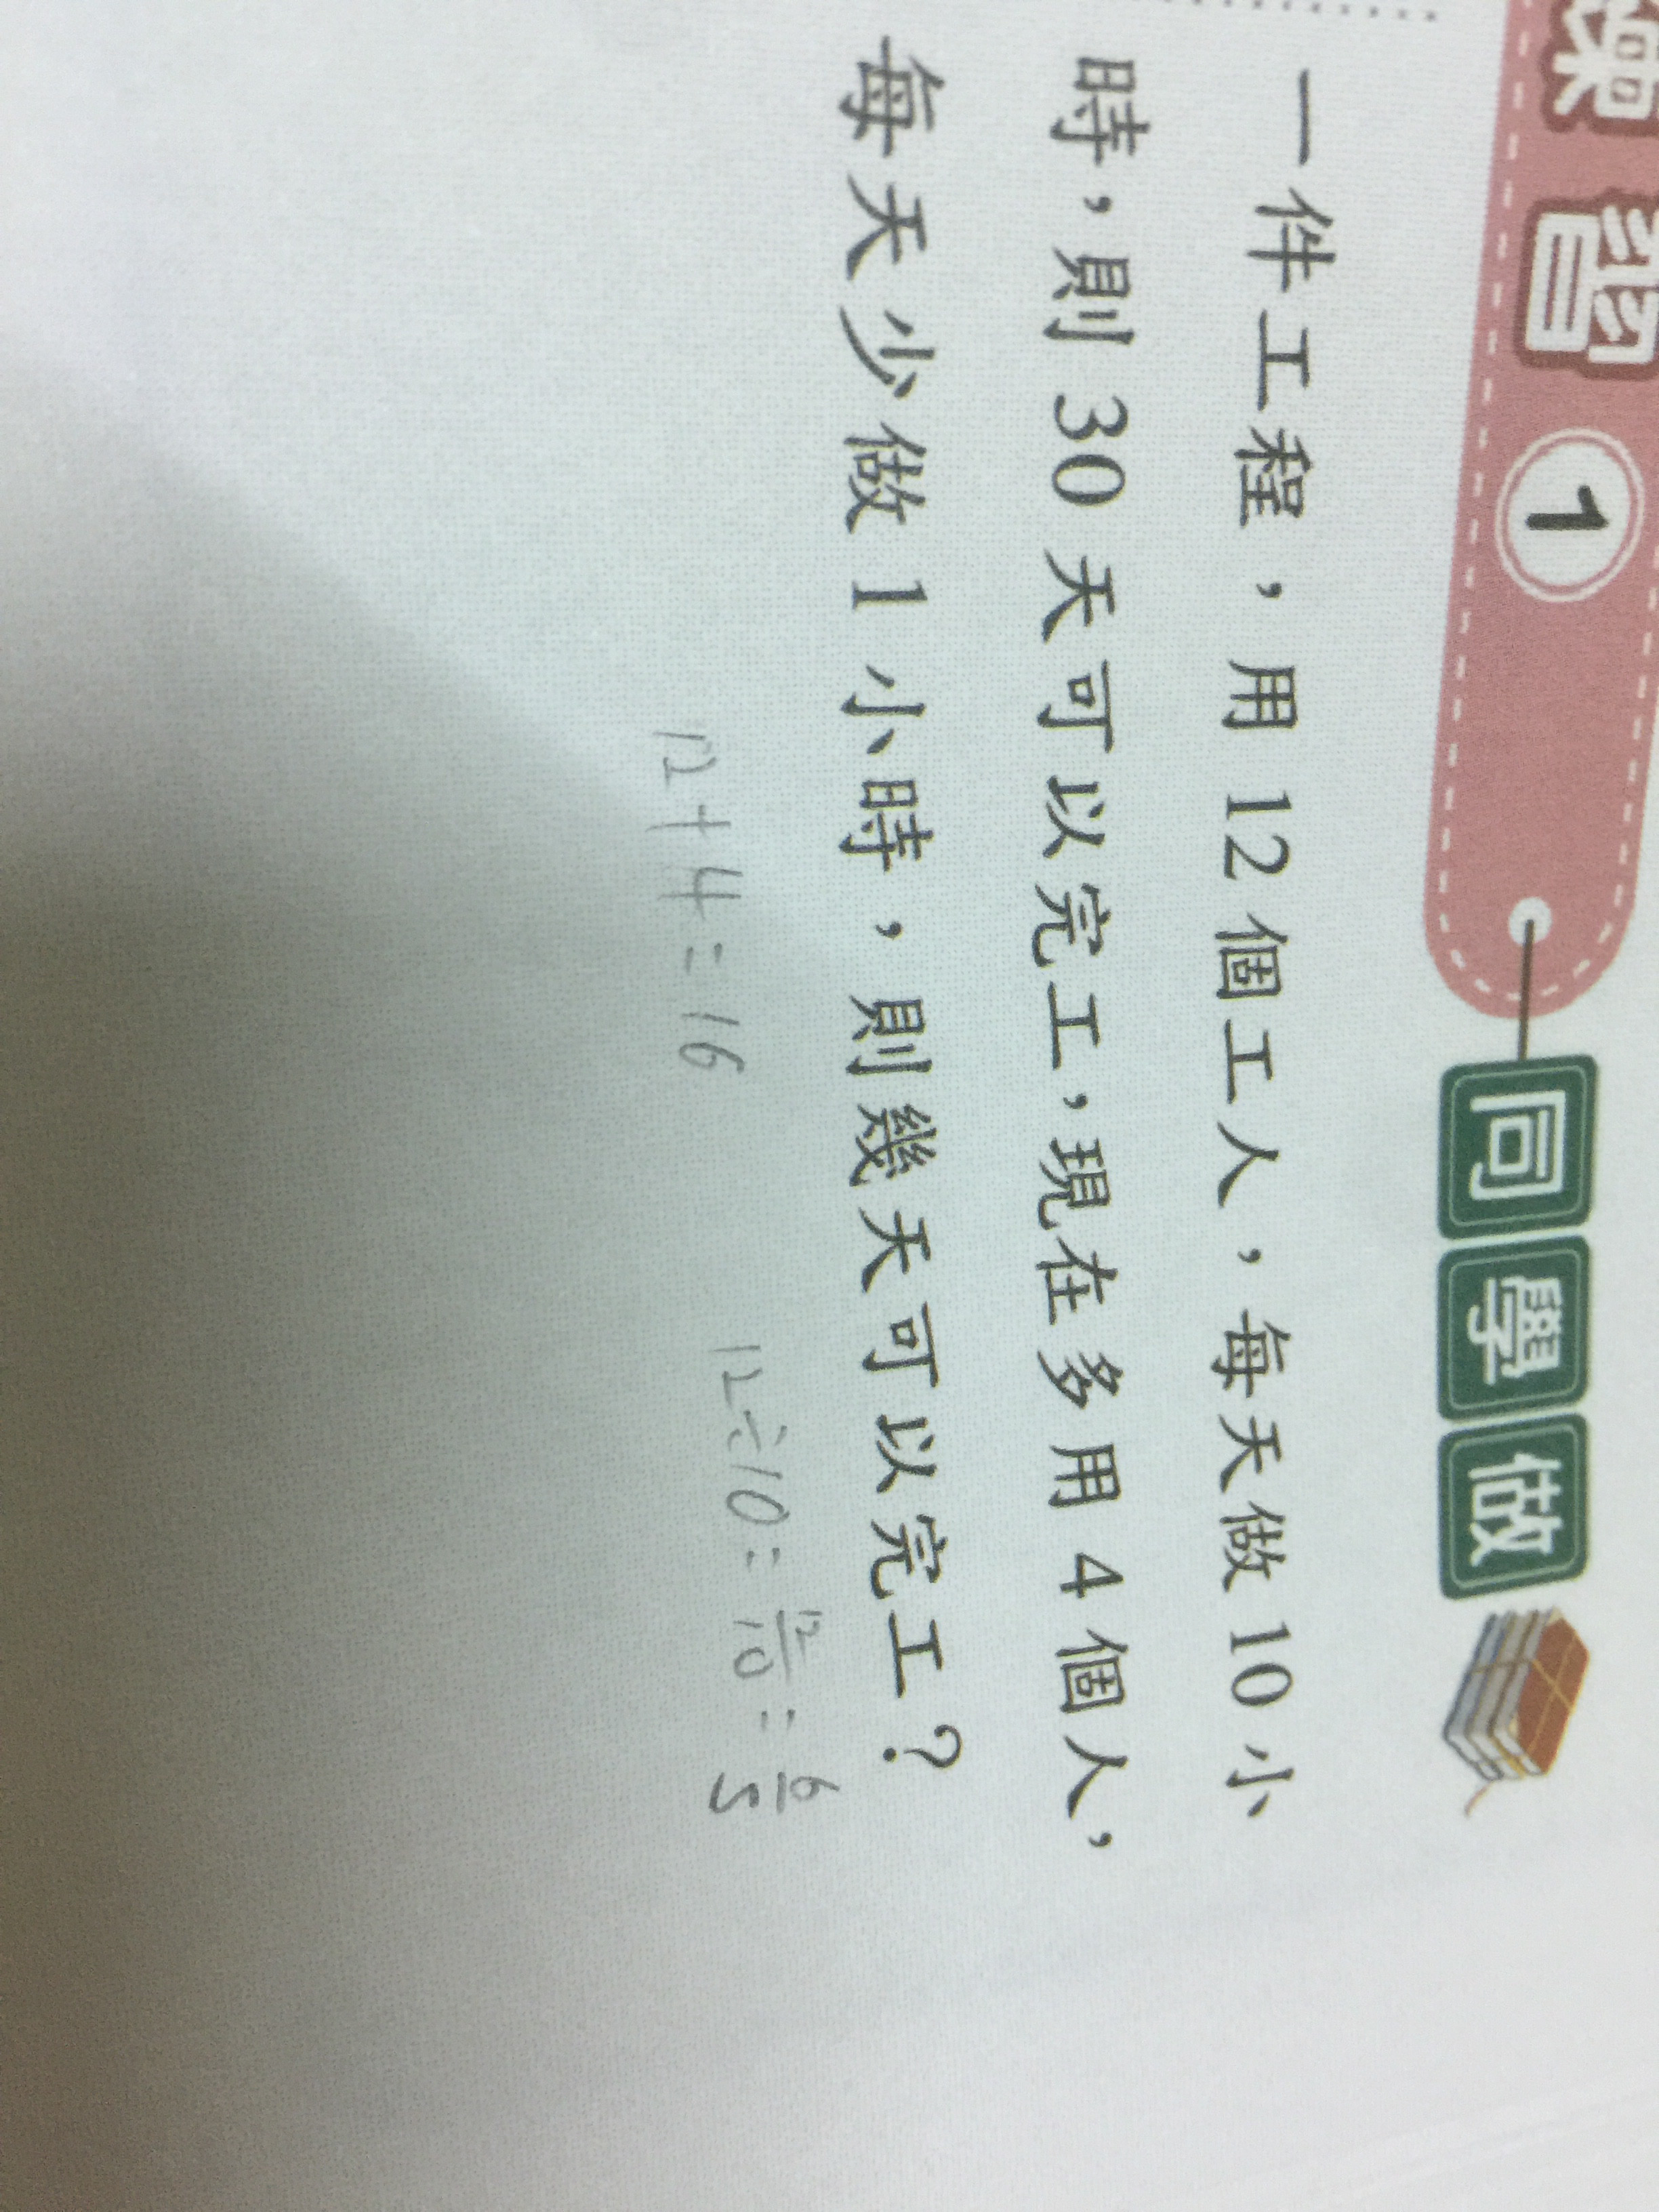 練習 1 同學做
一件工程，用 12 個工人，每天做 10 小
時，則 30 天可以完工，現在多用 4 個人，
每天少做 1 小時，則幾天可以完工？
12+4=16
12÷10=12/10=6/5